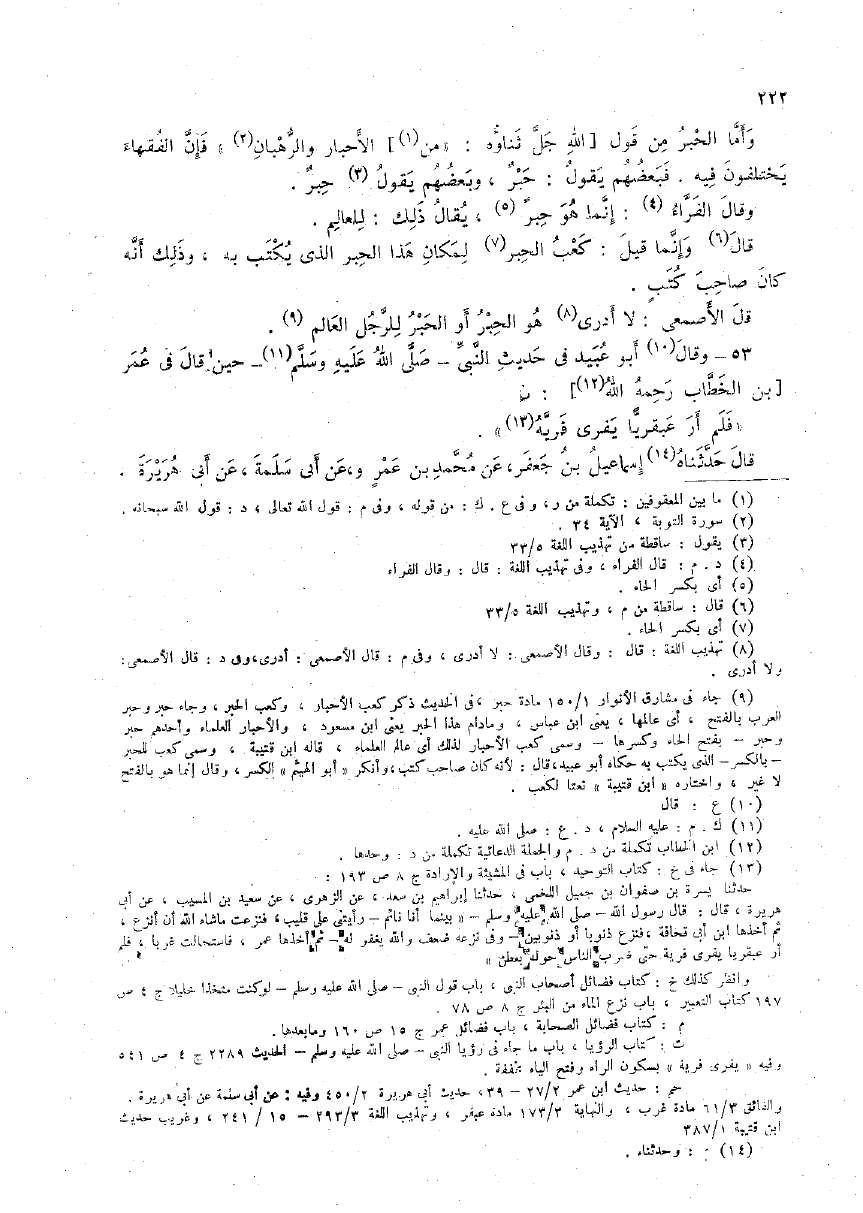 ٢٢٢
وَأَمَّا الحْبرُ مِن قَول [اللهِ جَلَّ ثَناؤُه : «من(١)] الأَحبار والرُّهْبانِ(٢)» فَإنَّ الفُقهاءَ
يَختلفونَ فِيه . فَبَعضُهُم يَقولُ : حَبْرٌ ، وبَعضُهُم يَقولُ (٣) حِبرٌ .
وقالَ الفَرَّاءُ (٤) : إنَّما هُوَ حِبرٌ (٥) ، يُقالُ ذَلِك : لِلعالِم .
قالَ(٦) وَإنَّما قيلَ : كَعْبُ الحِبر(٧) لِمَكانِ هَذا الحِبر الذى يُكْتَب به ، وذَلِك أَنَّه
كانَ صاحِبَ كُتُبٍ .
قلَ الأَصمعى : لا أَدرى(٨) هُو الحِبْرُ أو الحَبْرُ لِلرَّجُل العَالم (٩) .
٥٣ – وقالَ(١٠) أَبو عُبَيد فى حَديثِ النَّبىِّ – صَلَّى اللهُ عَلَيهِ وسَلَّم(١١) – حين قالَ فى عُمَر
[بن الخَطَّاب رَحِمهُ اللهُ(١٢)] :
«فَلَم أَرَ عَبقريًّا يَفرى فَريَّهُ(١٣)» .
قالَ حَدَّثَناهُ(١٤) إسماعيلُ بنُ جَعفَر، عَن مُحَمَّد بن عَمْرٍ و،عَن أَبى سَلَمةَ ، عَن أَبى هُرَيْرَةَ .
(١) ما بين المعقوفين : تكملة من ر، وفى ع . ك : من قوله ، وفى م : قول الله تعالى ، د : قول الله سبحانه .
(٢) سورة التوبة ، الآية ٣٤ .
(٣) يقول : ساقطة من تهذيب اللغة ٣٣/٥
(٤) د . م : قال الفراء ، وفى تهذيب اللغة : قال : وقال الفراء
(٥) أى بكسر الحاء .
(٦) قال : ساقطة من م ، وتهذيب اللغة ٣٣/٥
(٧) أى بكسر الحاء .
(٨) تهذيب اللغة : قال : وقال الأصمعى : لا أدرى ، وفى م : قال الأصمعى : أدرى،وفى د : قال الأصمعى:
ولا أدرى .
(٩) جاء فى مشارق الأنوار ١٥٠/١ مادة حبر ،فى الحديث ذكر كعب الأحبار ، وكعب الحبر ، وجاء حبر وحبر
العرب بالفتح ، أى عالمها ، يعنى ابن عباس ، ومادام هذا الحبر يعنى ابن مسعود ، والأحبار العلماء وأحدهم حبر
وحبر – بفتح الحاء وكسرها – وسمى كعب الأحبار لذلك أى عالم العلماء ، قاله ابن قتيبة ، وسمى كعب للحبر
– بالكسر – الذى يكتب به حكاه أبو عبيد،قال : لأنه كان صاحب كتب،وأنكر «أبو الهيثم» الكسر ، وقال إنما هو بالفتح
لا غير ، واختاره «ابن قتيبة» نعتا لكعب .
(١٠) ع : قال
(١١) ك . م : عليه السلام ، د . ع : صلى الله عليه .
(١٢) ابن الخطاب تكملة من د . م والجملة الدعائية تكملة من د : وحدها .
(١٣) جاء فى خ : كتاب التوحيد ، باب فى المشيئة والإرادة ج ٨ ص ١٩٣ :
حدثنا يسرة بن صفوان بن جميل اللخمى ، حدثنا إبراهيم بن سعد ، عن الزهرى ، عن سعيد بن المسيب ، عن أبى
هريرة ، قال : قال رسول الله – صلى الله عليه وسلم – « بينما أنا نائم – رأيتنى على قليب ، فنزعت ماشاء الله أن أنزع ،
ثم أخذها ابن أبى قحافة ،فنزع ذنوبا أو ذنوبين – وفى نزعه ضعف والله يغفر له – ثم أخذها عمر ، فاستحالت غربا ، فلم
أر عبقريا يفرى فرية حتى ضرب الناس حوله بعطن »
وانظر كذلك خ : كتاب فضائل أصحاب النبى ، باب قول النبى – صلى الله عليه وسلم – لوكنت متخذا خليلا ج ٤ ص
١٩٧ كتاب التعبير ، باب نزع الماء من البئر ج ٨ ص ٧٨ .
م : كتاب فضائل الصحابة ، باب فضائل عمر ج ١٥ ص ١٦٠ ومابعدها .
ت : كتاب الرؤيا ، باب ما جاء فى رؤيا النبى – صلى الله عليه وسلم – الحديث ٢٢٨٩ ج ٤ ص ٥٤١
وفيه « يفرى فرية » بسكون الراء وفتح الياء مخففة .
حم : حديث ابن عمر ٢٧/٢ – ٣٩، حديث أبى هريرة ٤٥٠/٢ وفيه : عن أبى سلمة عن أبى هريرة .
والفائق ٦١/٣ مادة غرب ، والنهاية ١٧٣/٣ مادة عبقر ، وتهذيب اللغة ٢٩٣/٣ – ١٥ / ٢٤١ ، وغريب حديث
ابن قتيبة ٣٨٧/١
(١٤) : وحدثناه .